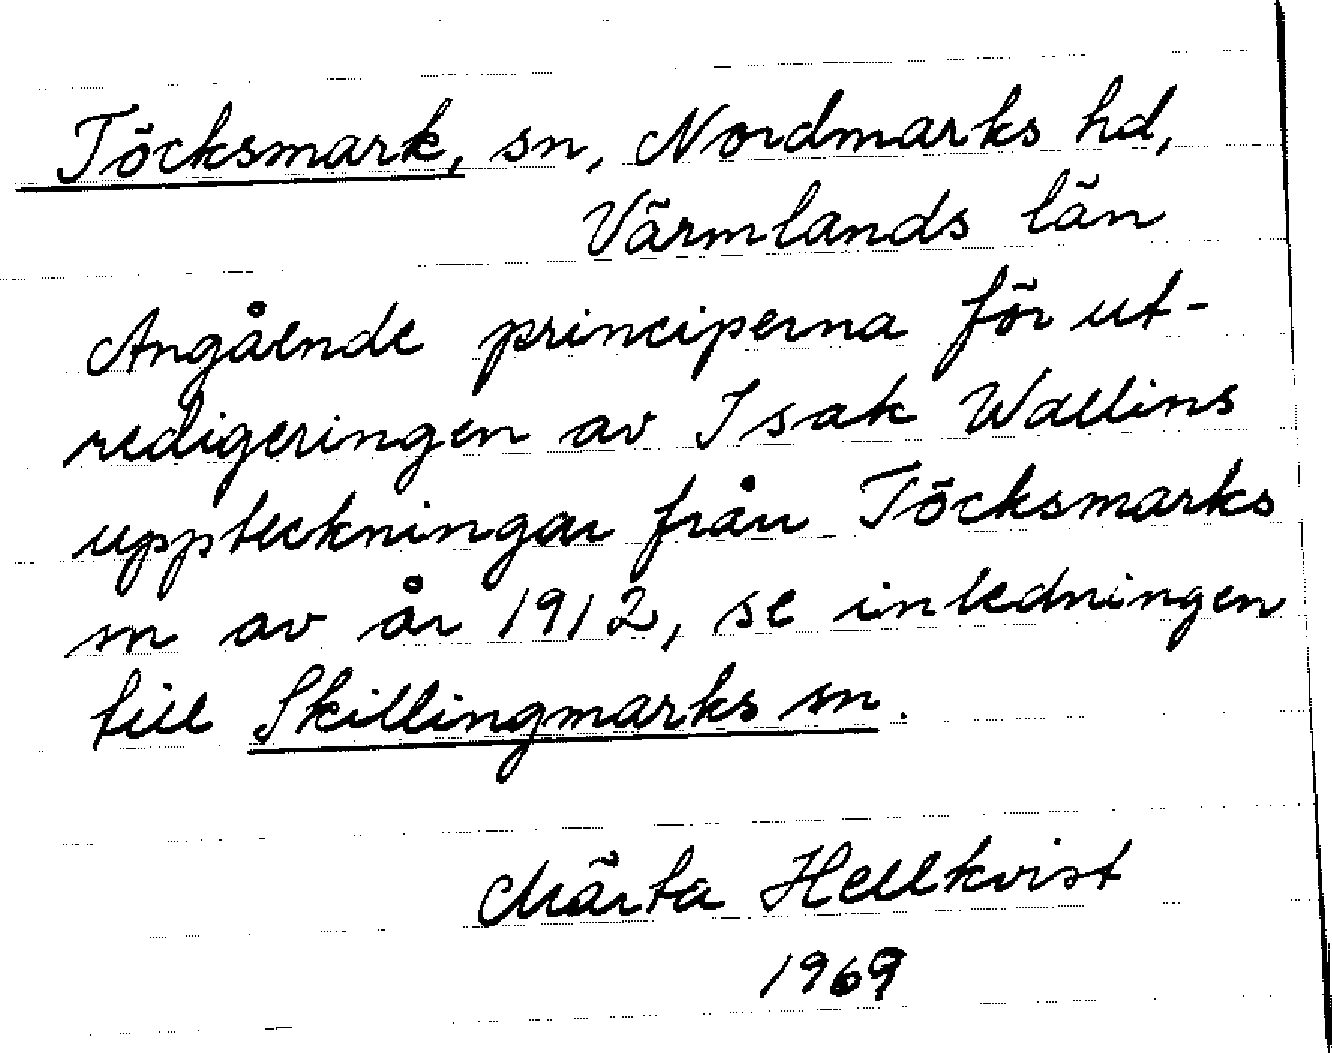 Töcksmark, sn, Nordmarks hd,
Värmlands län
Angående principerna för ut-
redigeringen av Isak Wallins
uppteckningar från Töcksmarks
sn av år 1912, se inledningen
till Skillingmarks sn.
Märta Hellkvist
1969